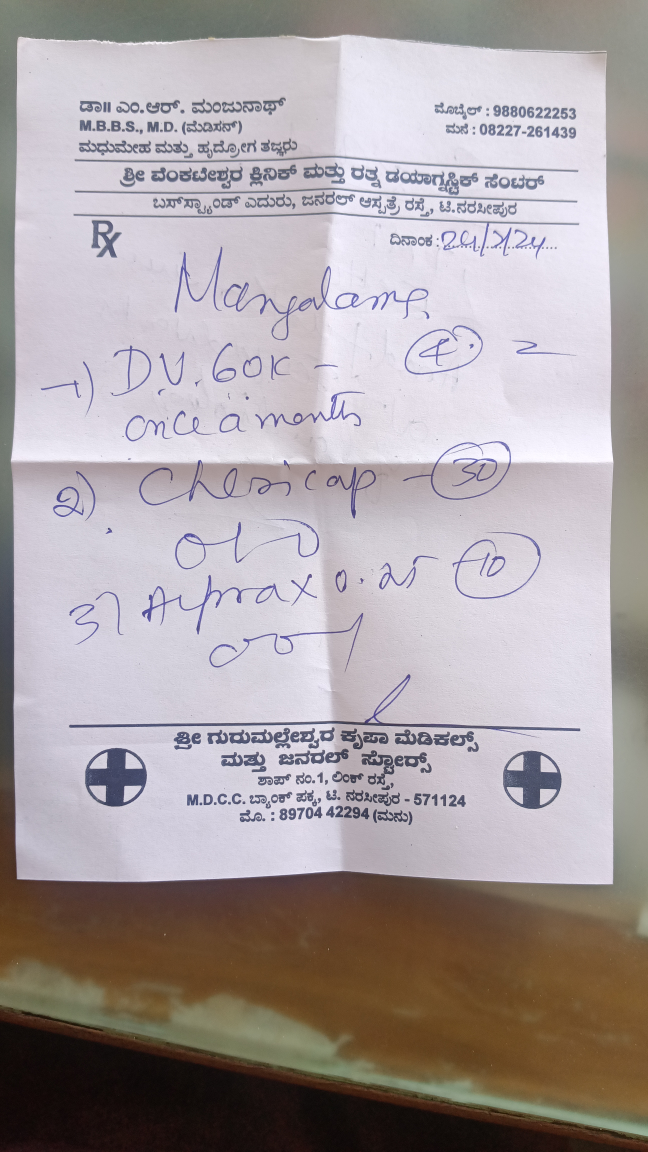 ಡಾ॥ ಎಂ.ಆರ್. ಮಂಜುನಾಥ್
M.B.B.S., M.D. (ಮೆಡಿಸನ್)
ಮಧುಮೇಹ ಮತ್ತು ಹೃದ್ರೋಗ ತಜ್ಞರು
ಮೊಬೈಲ್ : 9880622253
ಮನೆ : 08227-261439
ಶ್ರೀ ವೆಂಕಟೇಶ್ವರ ಕ್ಲಿನಿಕ್ ಮತ್ತು ರತ್ನ ಡಯಾಗ್ನಸ್ಟಿಕ್ ಸೆಂಟರ್
ಬಸ್‌ಸ್ಟ್ಯಾಂಡ್ ಎದುರು, ಜನರಲ್ ಆಸ್ಪತ್ರೆ ರಸ್ತೆ, ಟಿ.ನರಸೀಪುರ
Rx
ದಿನಾಂಕ :
1) D.V. 60K - 4
once a month
2) - 30
3) 0.25 - 10
ಶ್ರೀ ಗುರುಮಲ್ಲೇಶ್ವರ ಕೃಪಾ ಮೆಡಿಕಲ್ಸ್
ಮತ್ತು ಜನರಲ್ ಸ್ಟೋರ್ಸ್
ಶಾಪ್ ನಂ.1, ಲಿಂಕ್ ರಸ್ತೆ,
M.D.C.C. ಬ್ಯಾಂಕ್ ಪಕ್ಕ, ಟಿ. ನರಸೀಪುರ - 571124
ಮೊ. : 89704 42294 (ಮನು)